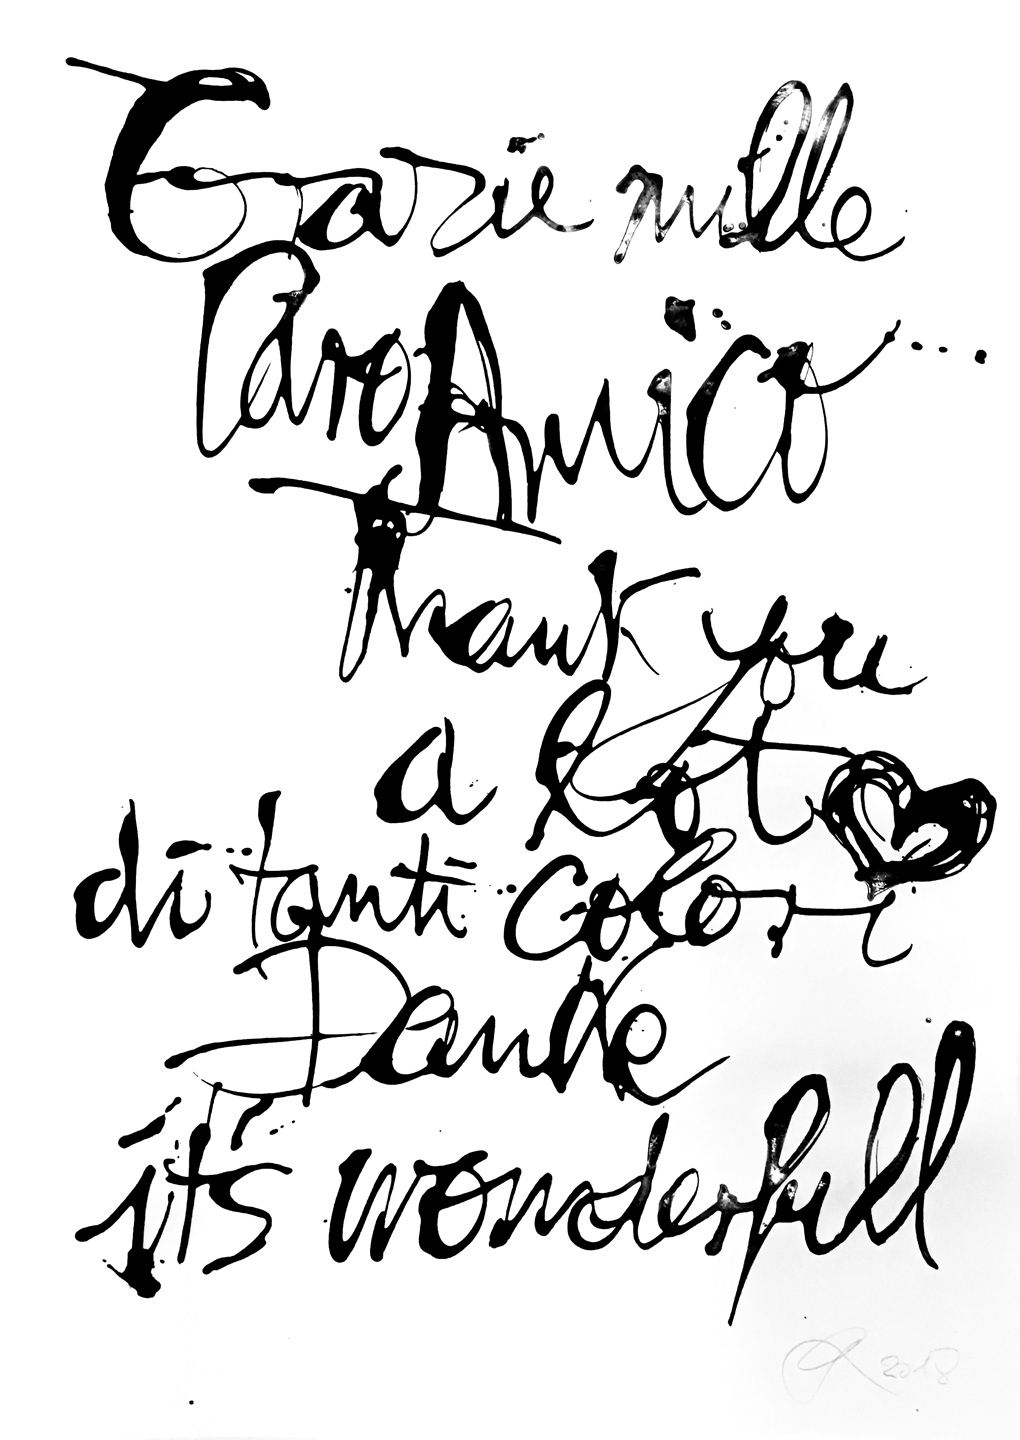 Grazie mille
Caro Amico...
Thank you
a lot
di tanti colori
Danke
it's wonderfull
2018